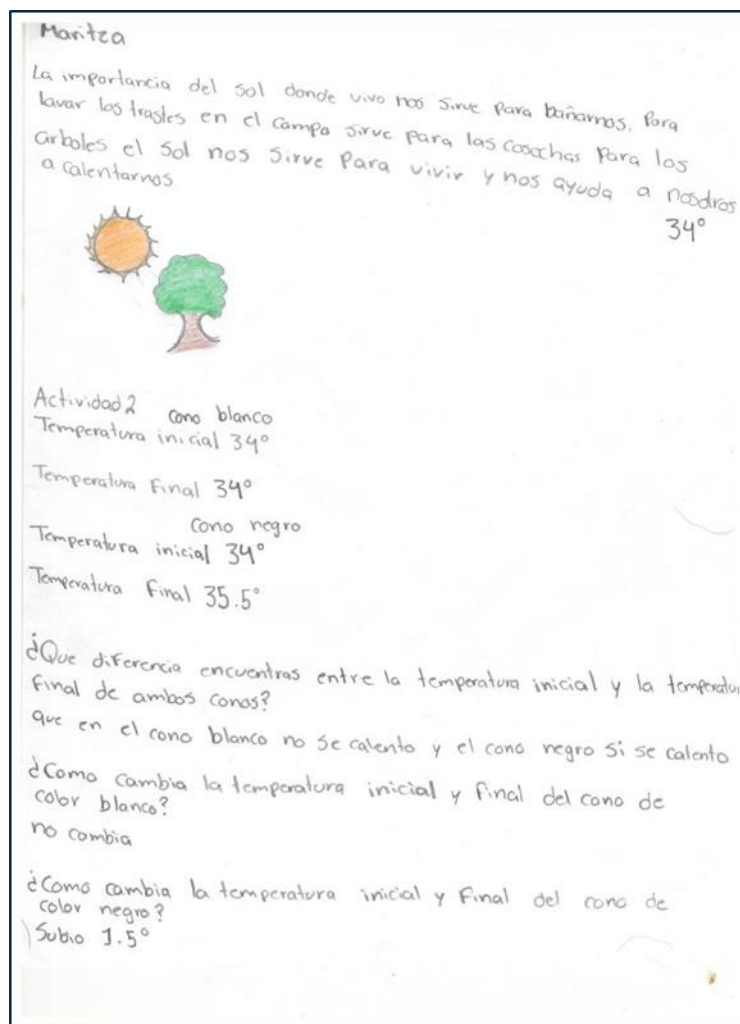 Maritza
La importancia del sol donde vivo nos sirve para bañarnos, Para
lavar los trastes en el campo sirve para las cosechas Para los
arboles el Sol nos Sirve Para vivir y nos ayuda a nosotros
a calentarnos
34°
Actividad 2 cono blanco
Temperatura inicial 34°
Temperatura Final 34°
cono negro
Temperatura inicial 34°
Temperatura final 35.5°
¿Que diferencia encuentras entre la temperatura inicial y la temperatur
final de ambos conos?
que en el cono blanco no se calento y el cono negro si se calento
¿Como cambia la temperatura inicial y final del cono de
color blanco?
no cambia
¿Como cambia la temperatura inicial y Final del cono de
color negro?
Subio 1.5°